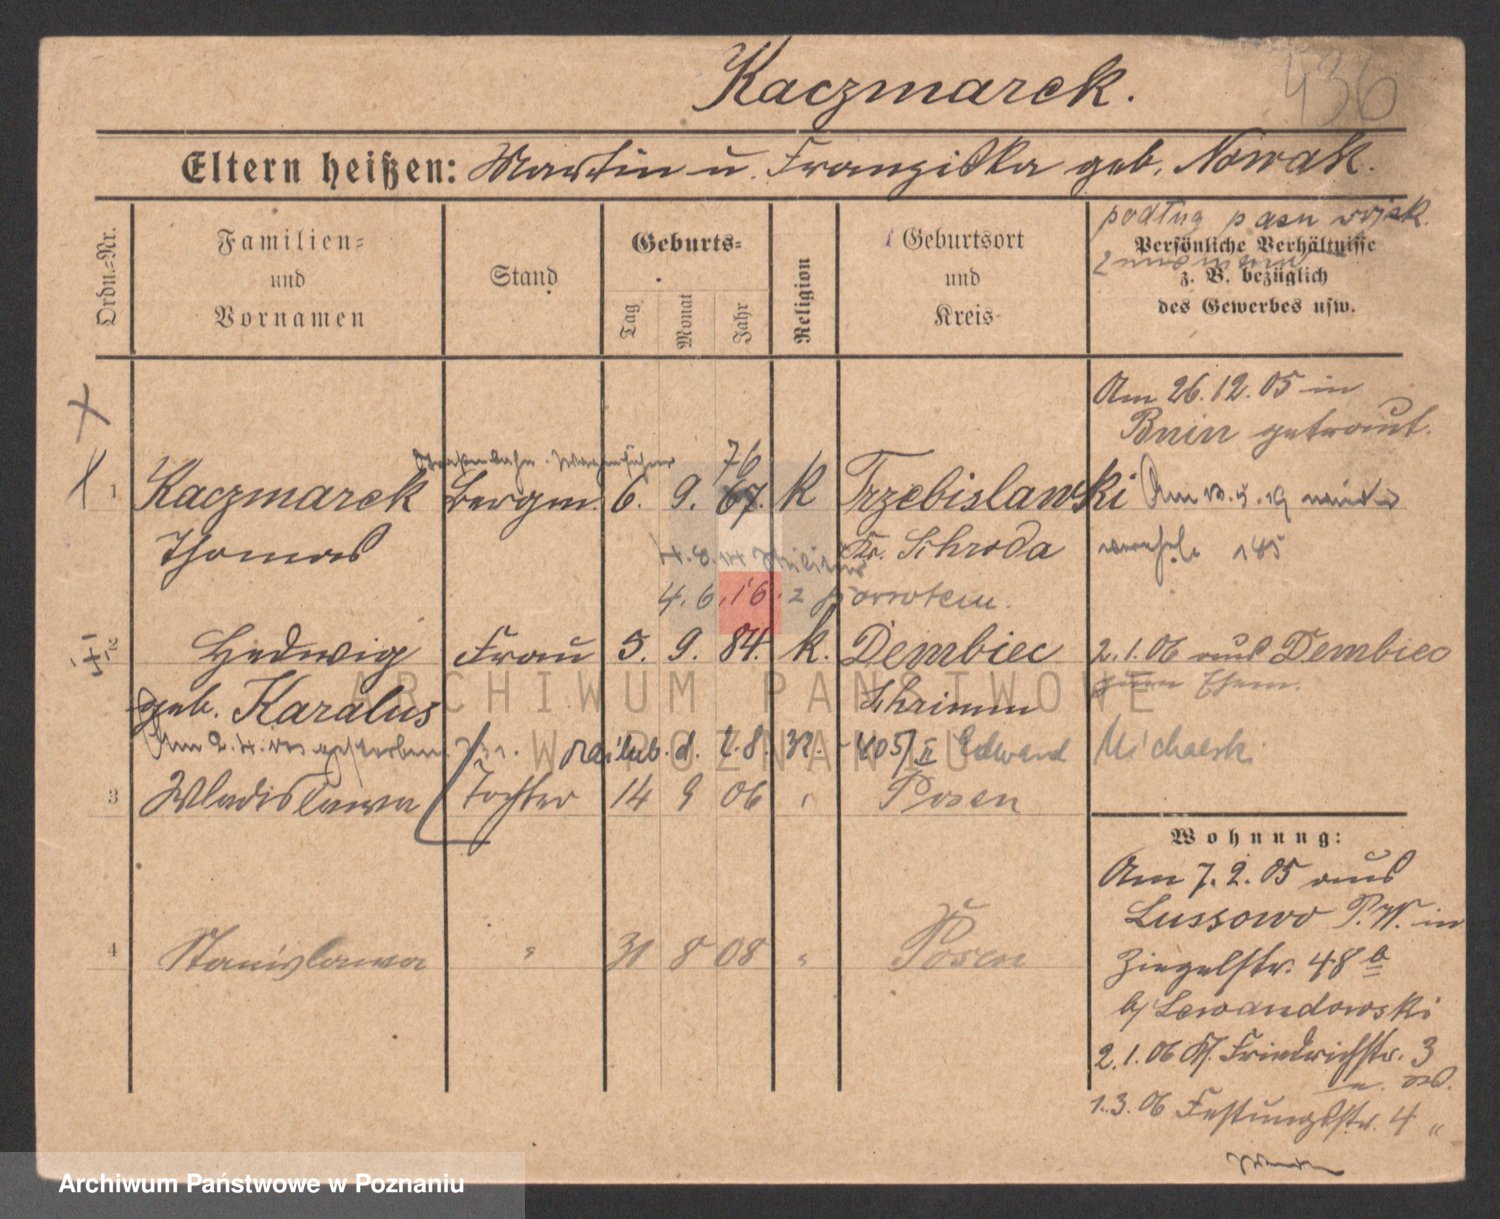 Kaczmarek.
436
Eltern heißen: Martin u. Franziska geb. Nowak.
podług pasu wojsk.
Ordn.-Nr.
Familien-
und
Vornamen
Stand
Geburts-
Tag
Monat
Jahr
Religion
Geburtsort
und
Kreis
Persönliche Verhältnisse
z. B. bezüglich
des Gewerbes usw.
Am 26.12.05 in
Bnin getraut.
76
1 Kaczmarek Bergm. 6. 9. 67. K Trzebislawski
Am 5.19
Thomas
Kr. Schroda
185
4.6.16.
2 Hedwig Frau 5. 9. 84. k. Dembiec
2.1.06 aus Dembiec
geb. Karalus
Schrimm
zum Ehem.
Am 2. gestorben
405/II Edward Michalski
3 Wladislawa Tochter 14 9 06 Posen
Wohnung:
Am 7.2.05 aus
Lussowo P.W. in
4 Stanislawa " 31 8 08 " Posen
Ziegelstr. 48a
b/ Lewandowski
2.1.06 Kl. Friedrichstr. 3
1.3.06 Festungsstr. 4 "
ARCHIWUM PAŃSTWOWE
W POZNANIU
Archiwum Państwowe w Poznaniu